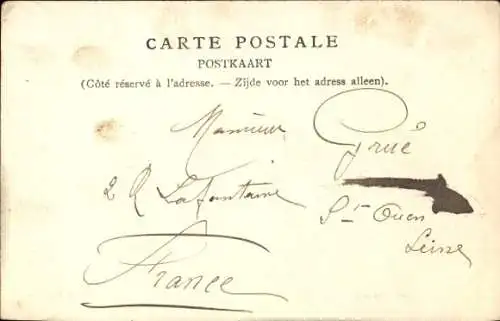 CARTE POSTALE
POSTKAART
(Côté réservé à l'adresse. — Zijde voor het adress alleen).
Monsieur Grué
2 R Lafontaine
St Ouen
Seine
France